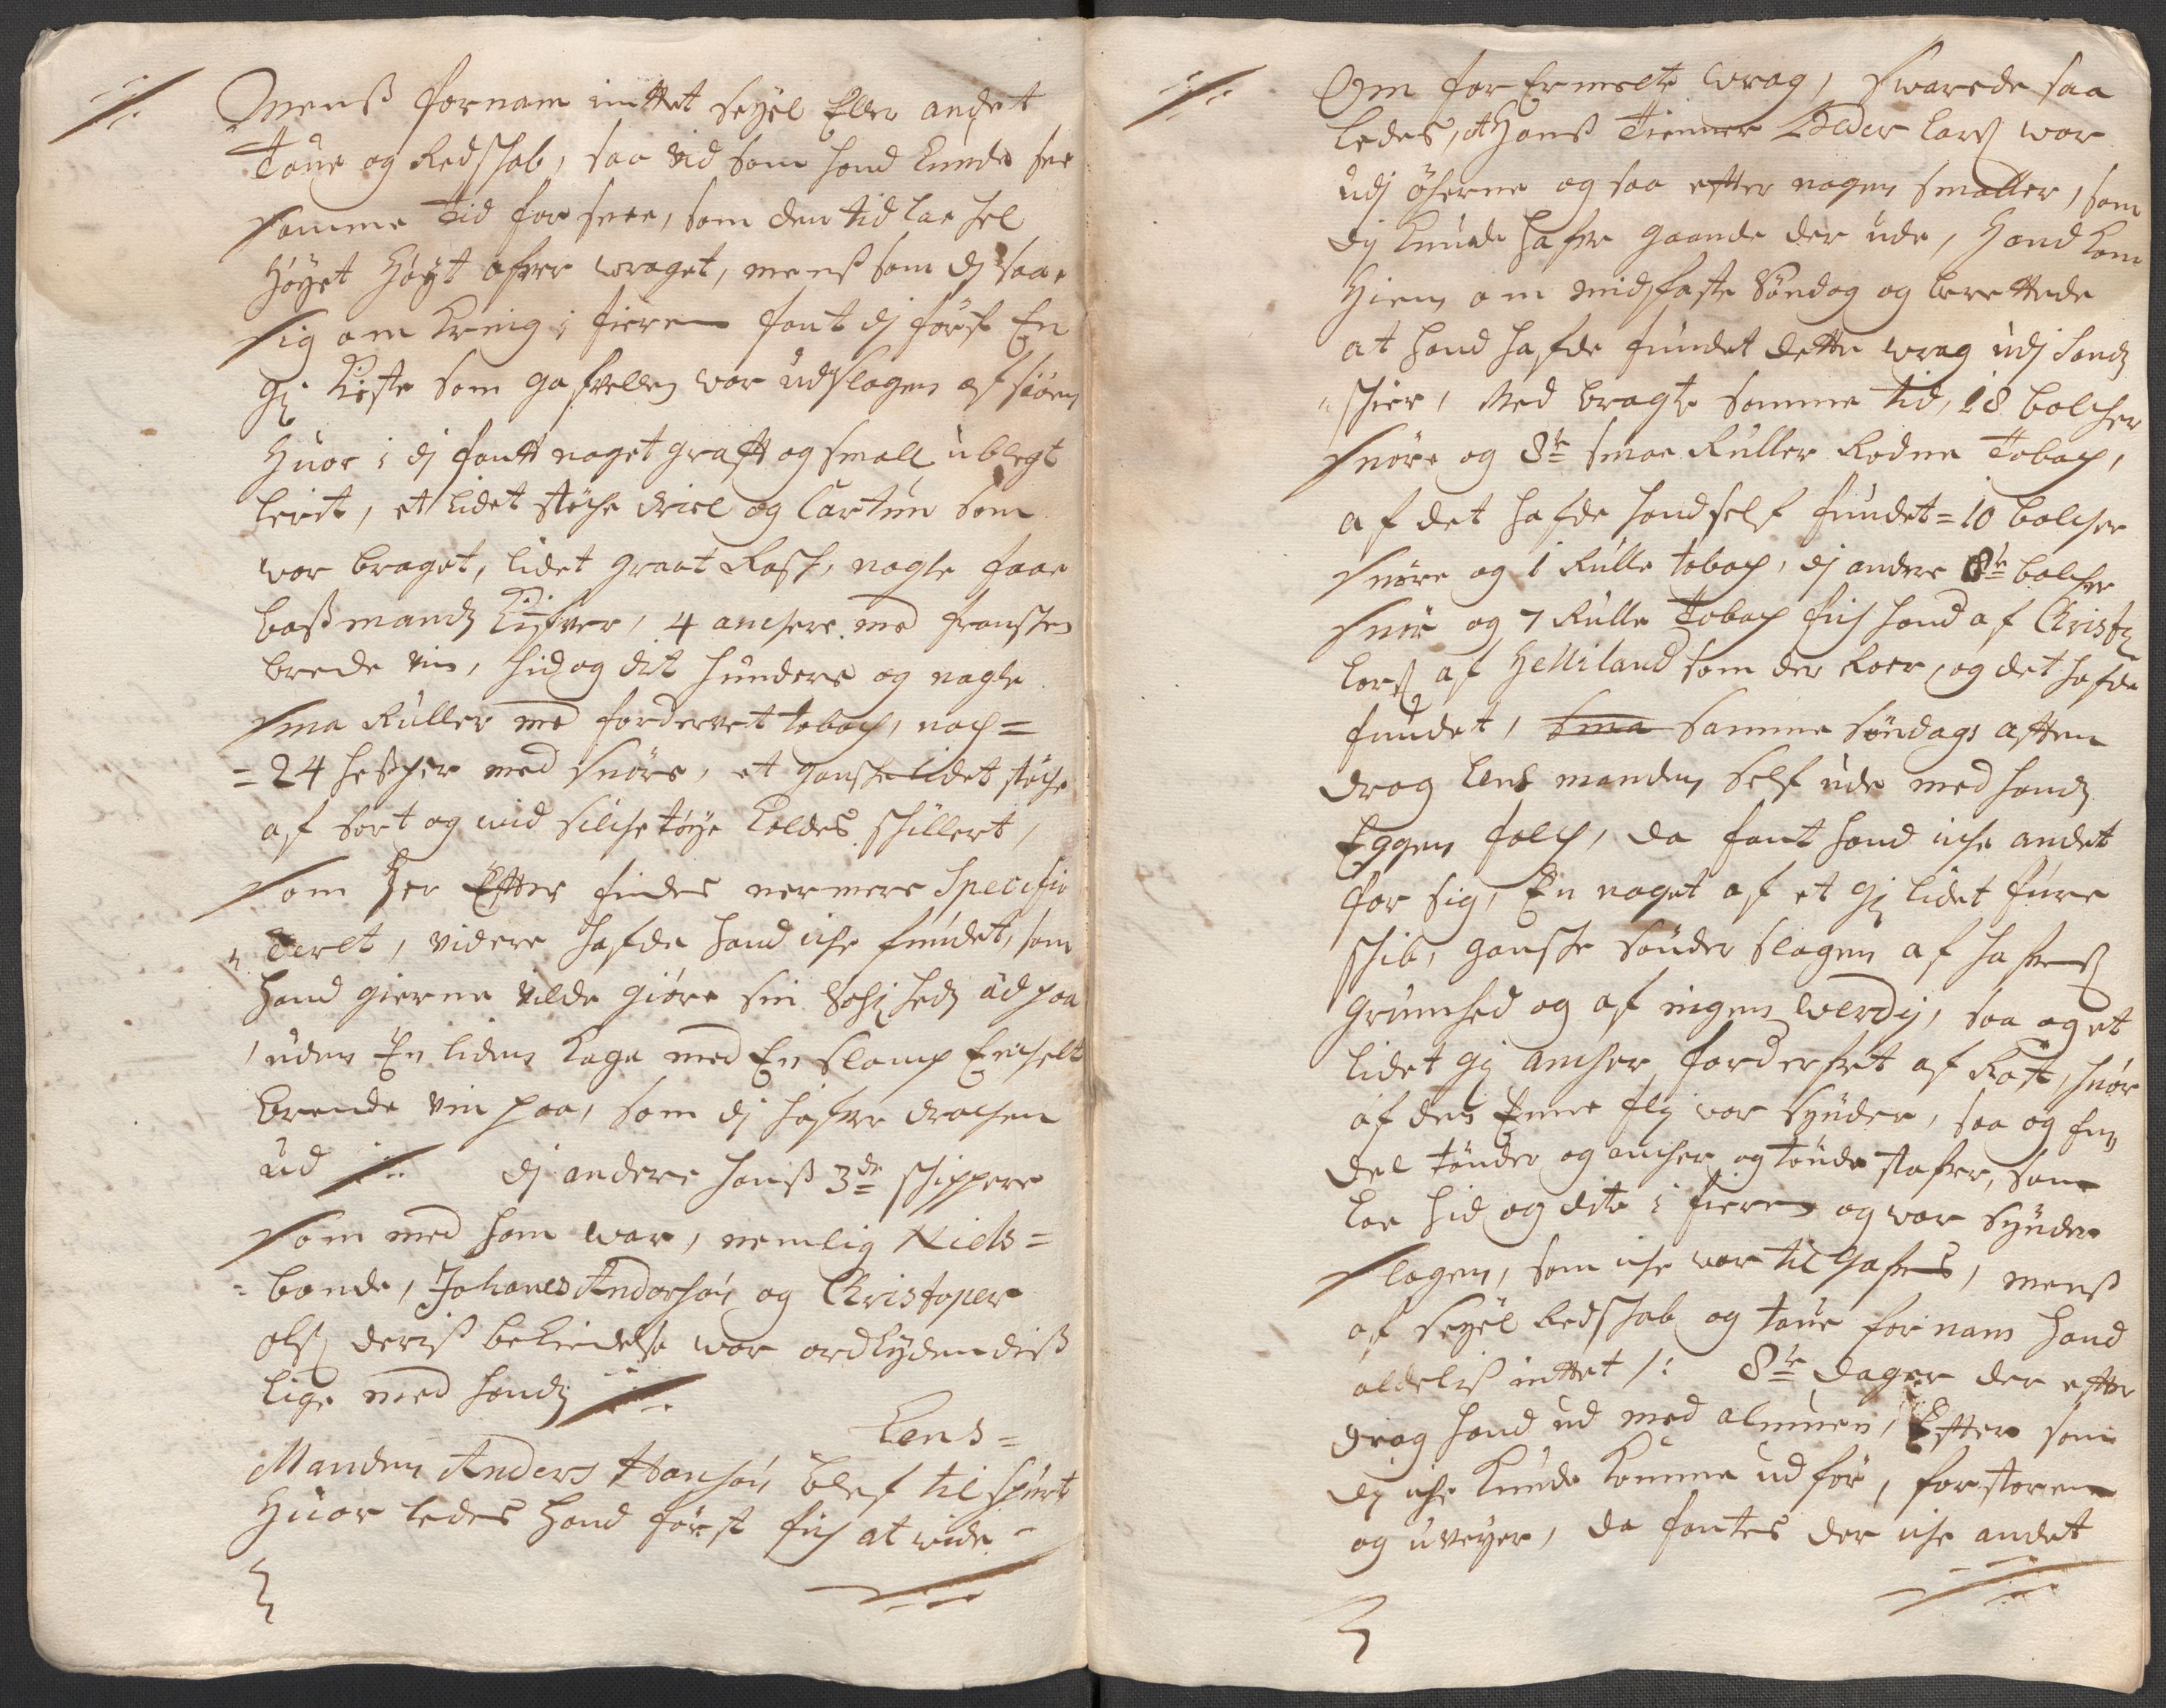 Menß fornam inttet seyel Eller andet
Toue og Redskab, saa vid som hand kunde see
somme Tid for snee, som den tid lae hel
Høyet høyt ofver wraget, menß som dj saae
sig om kring i fieren fant dj først En
gl kiste som gafvellen var udslagen af siøen
Huor i dj fantt noget grofft og smalt ublegt
lerit, et lidet støche driel og Cartun som
war braget, lidet graat Rask, nogle faae
boßmandz Knifver, 4 anchere med fransken
brende vin, hid og dit hunders og nogle
sma Ruller med fordervet tobach, noch =
= 24 hesper med snøre, et gansche lidet støche
af sort og uid silche tøye kaldes schillert,
som her Efter findes nermere Specifi
ceret, videre hafde hand iche fundet, som
hand gierne vilde giøre sin Eed ud paa
, uden En liden kage med En slomp Enchelt
brende vin paa, som dj hafver drochen
ud dj andere hanß 3de schippere
som med ham war, nemlig Niels =
= bonde, Johanes Andersøn og Christoper
olß deriß bekiendelse war ordlydendiß
lige med handz
Lens =
Manden Anders Hansøn blef til spurt
Huor ledes hand først fich at vide
Om for Ermelte wrag, swarede saa
ledes, at Hanß Tienner Peder larß war
udj øherne og saa efter nogen smaller, som
dij kunde hafve gaande der ude, hand kom
Hiem om midfaste Søndag og berettede
at hand hafde fundet dette wrag udj Sandz
schier, Med bragte somme tid, 18 bolcher
snøre og 8te smae Ruller Rodne Tobach,
af det hafde hand self fundet = 10 bolcher
snøre og 1 Rulle tobach, dj andre 8te bolcher
snør og 7 Rulle Tobach fich hand af Christ
larß af Helliland som der Roer, og det hafde
fundet, sma samme søndags afften
drog lens manden self ude med handz
Eggen folch, da fant hand iche andet
for sig, En noget af et gl lidet fure
schib, gansche sønder slagen af hafveß
grumhed og af ingen werdij, saa og et
lidet gl ancher forderfvet af Rost, huor
af den Enne flij war synder, saa og En
del tønder og ancher og tønde stafver, som
lae hid og dite i fieren og war synder
slagen, som iche war til gafns, menß
af seyel Redskab og toue fornam hand
aldeliß inttet /: 8te dager der efter
drog hand ud med almuen, Efter som
dj iche kunde komme ud før, for storem
og uveyer, da fantes der iche andet